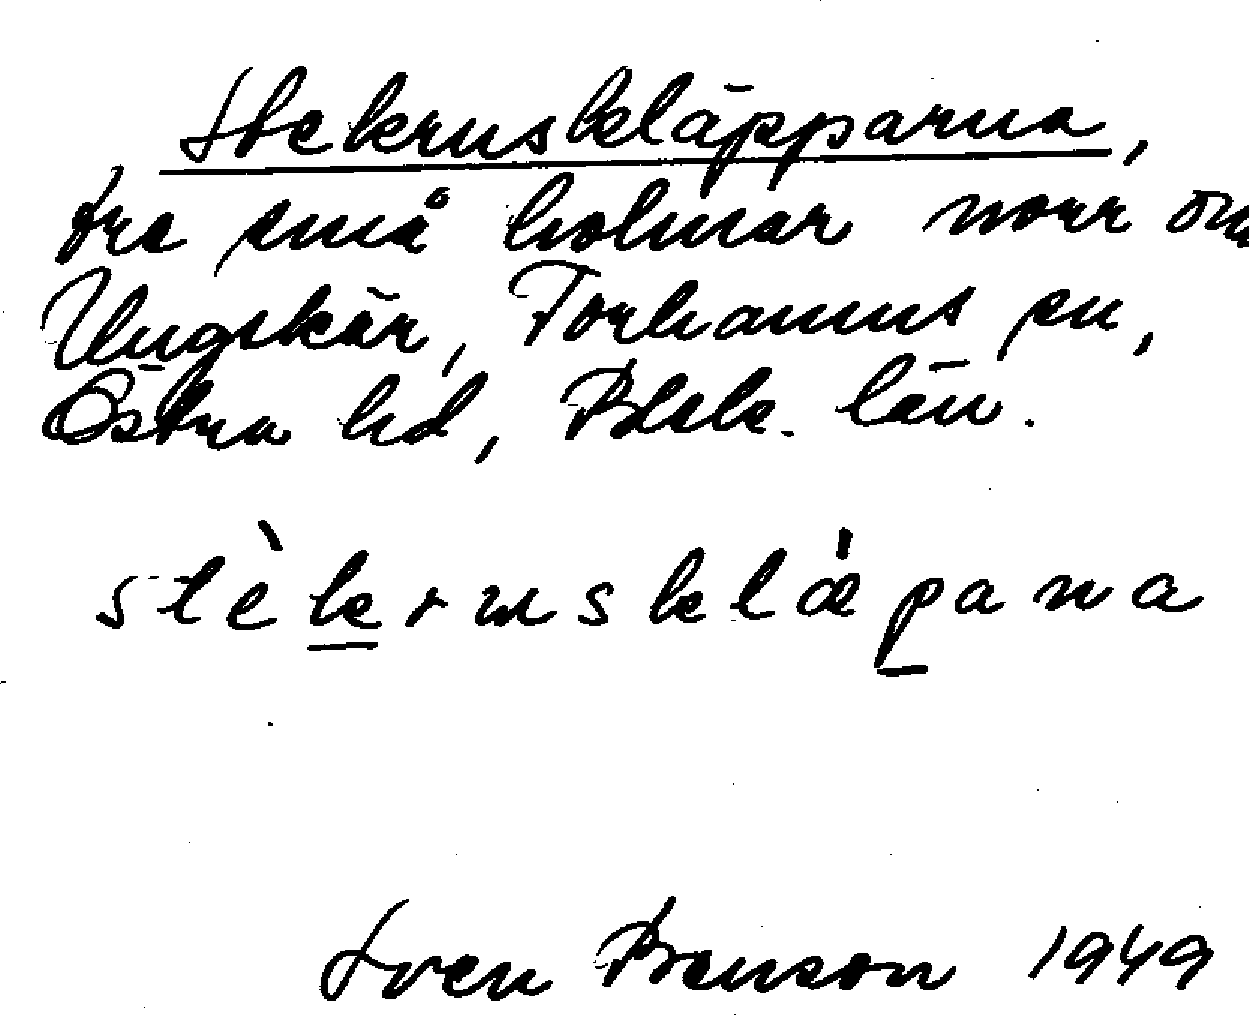 Stekruskläpparna,
tre små holmar norr om
Ungskär, Torhamns sn,
Östra hd, Blek. län.
stèkrusklápana
Sven Benson 1949